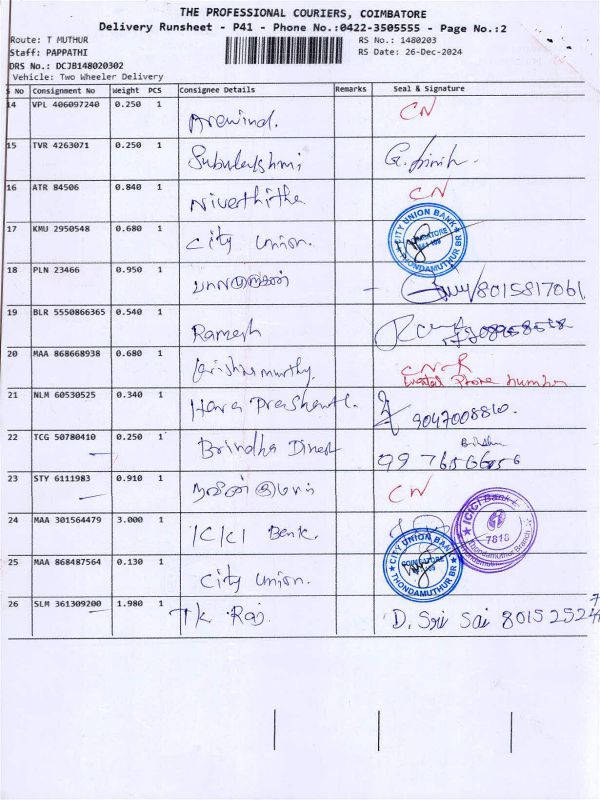 THE PROFESSIONAL COURIERS, COIMBATORE
Delivery Runsheet - P41 - Phone No.:0422-3505555 - Page No.:2
Route: T MUTHUR RS No.: 1480203
Staff: PAPPATHI RS Date: 26-Dec-2024
DRS No.: DCJB148020302
Vehicle: Two Wheeler Delivery
S No Consignment No Weight PCS Consignee Details Remarks Seal & Signature
14 VPL 406097240 0.250 1 Arewind. CN
15 TVR 4263071 0.250 1 Subulakshmi
16 ATR 84506 0.840 1 Nivethitha CN
17 KMU 2950548 0.680 1 City Union. CITY UNION BANK COIMBATORE THONDAMUTHUR BR
18 PLN 23466 0.950 1 பாலமுருகன் 8015817061
19 BLR 5550866365 0.540 1 Ramesh
20 MAA 868668938 0.680 1 Krishnamurthy. CN-R
Phone number
21 NLM 60530525 0.340 1 Hara Prashanth. 9047008810.
22 TCG 50780410 0.250 1 Brindha Dinesh
23 STY 6111983 0.910 1 நவீன் குமார் CN
24 MAA 301564479 3.000 1 ICICI Bank. ICICI Bank 7818 Thondamuthur Branch
25 MAA 868487564 0.130 1 City Union. CITY UNION BANK COIMBATORE THONDAMUTHUR BR
26 SLM 361309200 1.980 1 T.K. Raj. D. Sri Sai